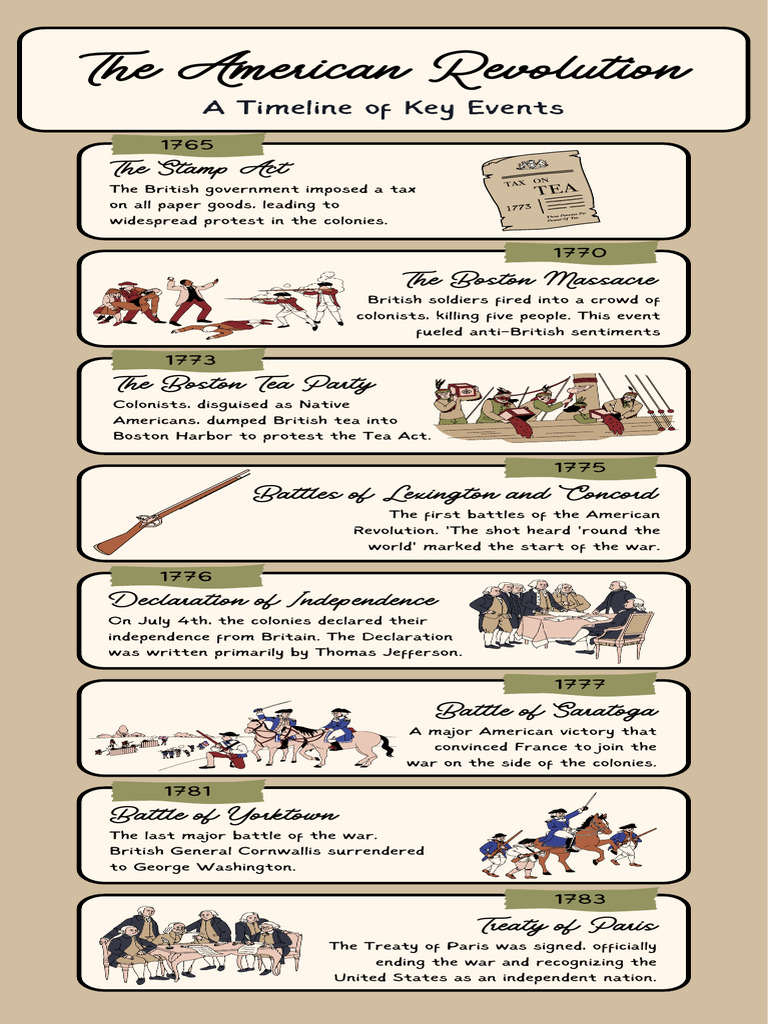 The American Revolution
A Timeline of Key Events
1765
The Stamp Act
The British government imposed a tax
on all paper goods, leading to
widespread protest in the colonies.
TAX ON
TEA
1773
1770
The Boston Massacre
British soldiers fired into a crowd of
colonists, killing five people. This event
fueled anti-British sentiments
1773
The Boston Tea Party
Colonists, disguised as Native
Americans, dumped British tea into
Boston Harbor to protest the Tea Act.
1775
Battles of Lexington and Concord
The first battles of the American
Revolution. 'The shot heard 'round the
world' marked the start of the war.
1776
Declaration of Independence
On July 4th, the colonies declared their
independence from Britain. The Declaration
was written primarily by Thomas Jefferson.
1777
Battle of Saratoga
A major American victory that
convinced France to join the
war on the side of the colonies.
1781
Battle of Yorktown
The last major battle of the war.
British General Cornwallis surrendered
to George Washington.
1783
Treaty of Paris
The Treaty of Paris was signed, officially
ending the war and recognizing the
United States as an independent nation.